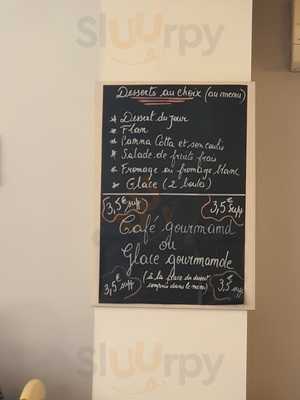 Sluurpy
Desserts au choix (au menu)
* Dessert du jour
* Flan
* Panna Cotta et son coulis
* Salade de fruits frais
* Fromage ou fromage blanc
* Glace (2 boules)
3,5€ supp 3,5€ supp
Café gourmand
ou
Glace gourmande
(à la place du dessert
compris dans le menu)
3,5€ supp 3,5€ supp
Sluurpy